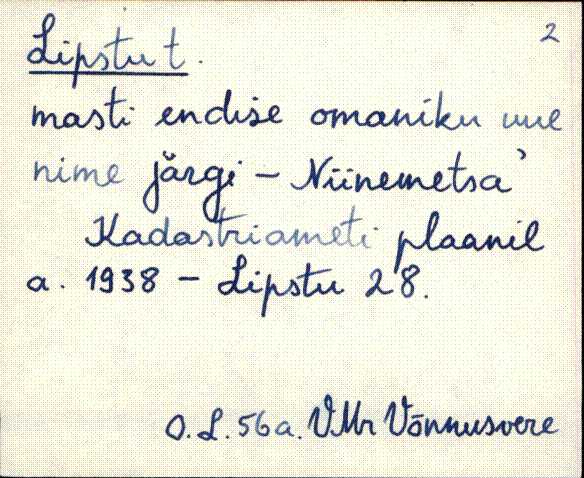 2
Lipstu t.
masti endise omaniku uue
nime järgi – Niinemetsa'
Kadastriameti plaanil
a. 1938 – Lipstu 28.
O. L. 56a. VMr Võnnusvere